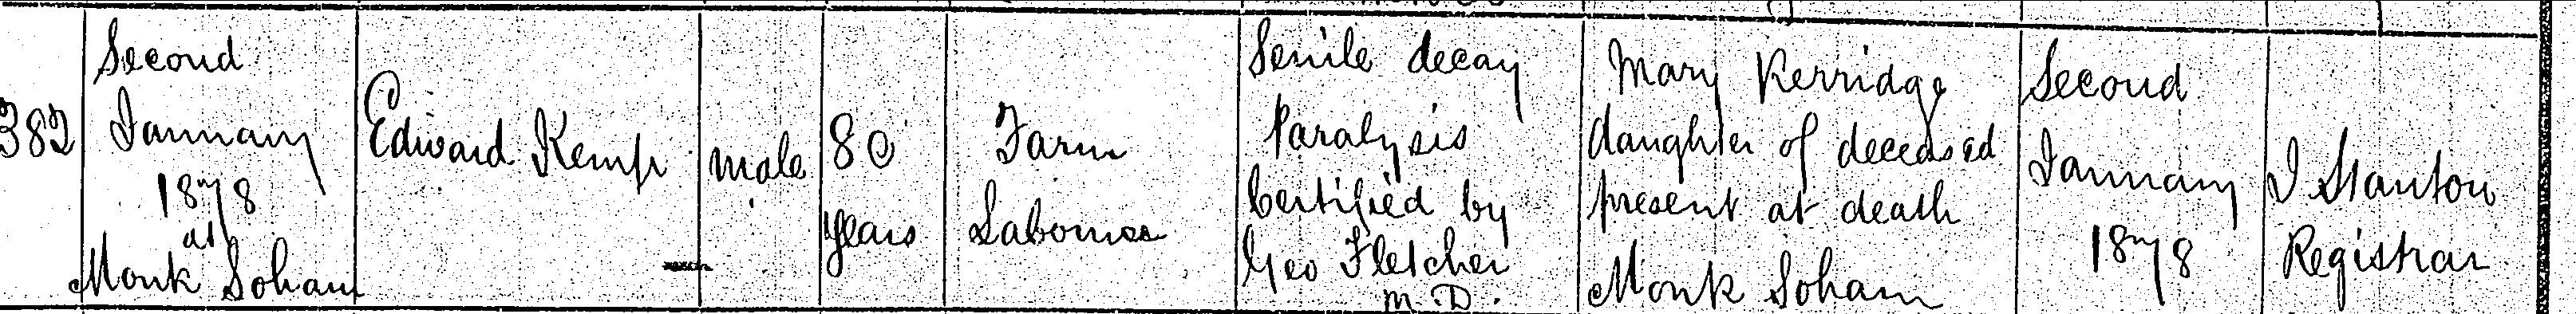 382
Second
January
1878
at
Monk Soham
Edward Kemp
male
80
years
Farm
Labourer
Senile decay
Paralysis
Certified by
Geo Fletcher
M.D.
Mary Kerridge
daughter of deceased
present at death
Monk Soham
Second
January
1878
J Stanton
Registrar